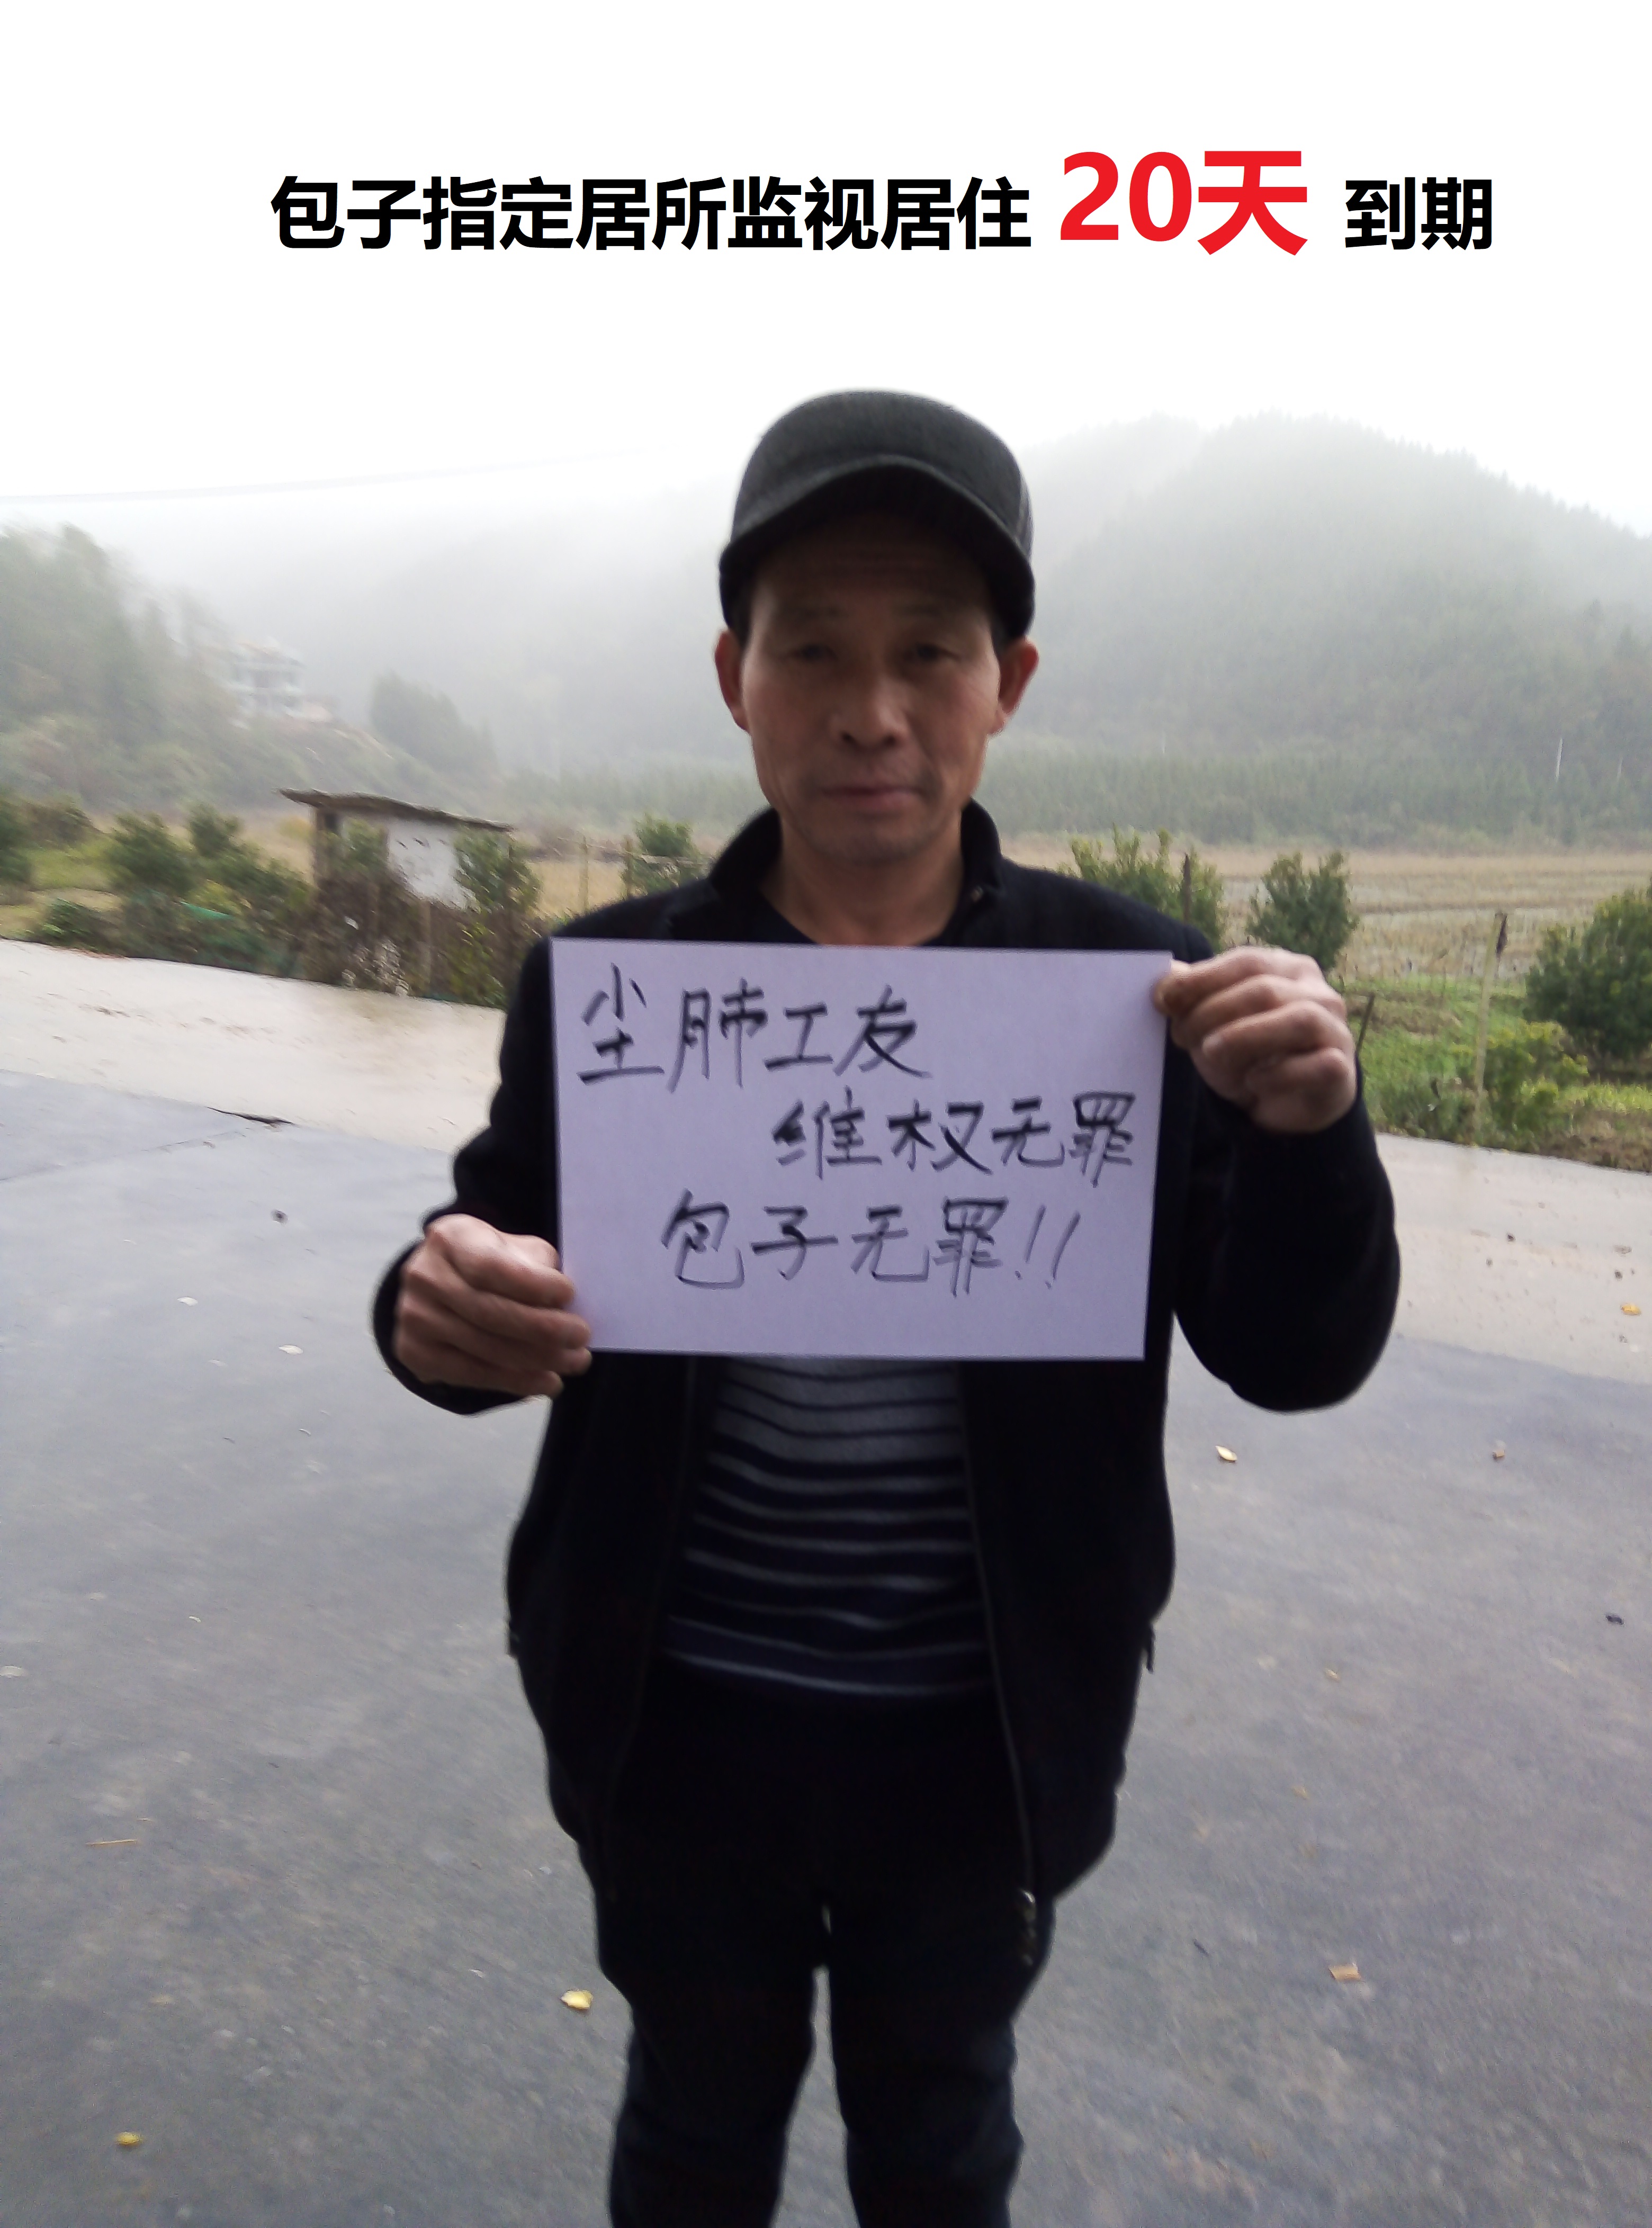 包子指定居所监视居住 20天 到期
尘肺工友
维权无罪
包子无罪!!